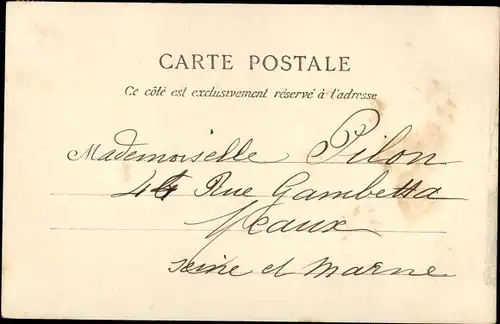 CARTE POSTALE
Ce côté est exclusivement réservé à l'adresse
Mademoiselle Pilon
44 Rue Gambetta
Meaux
Seine et Marne